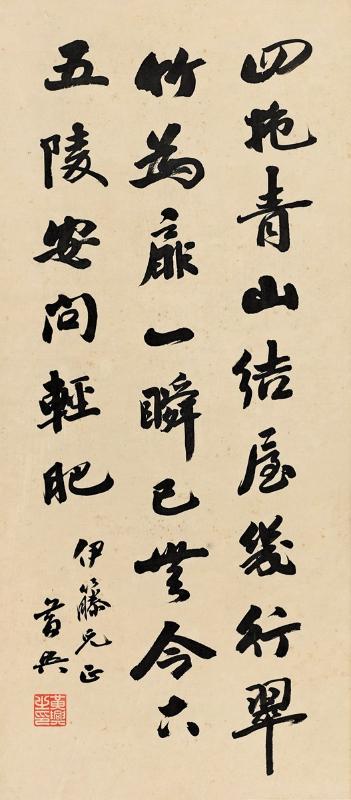 四拖青山結屋幾行翠
竹為扉一瞬已無今古
五陵安問輕肥
伊藤兄正
黃興